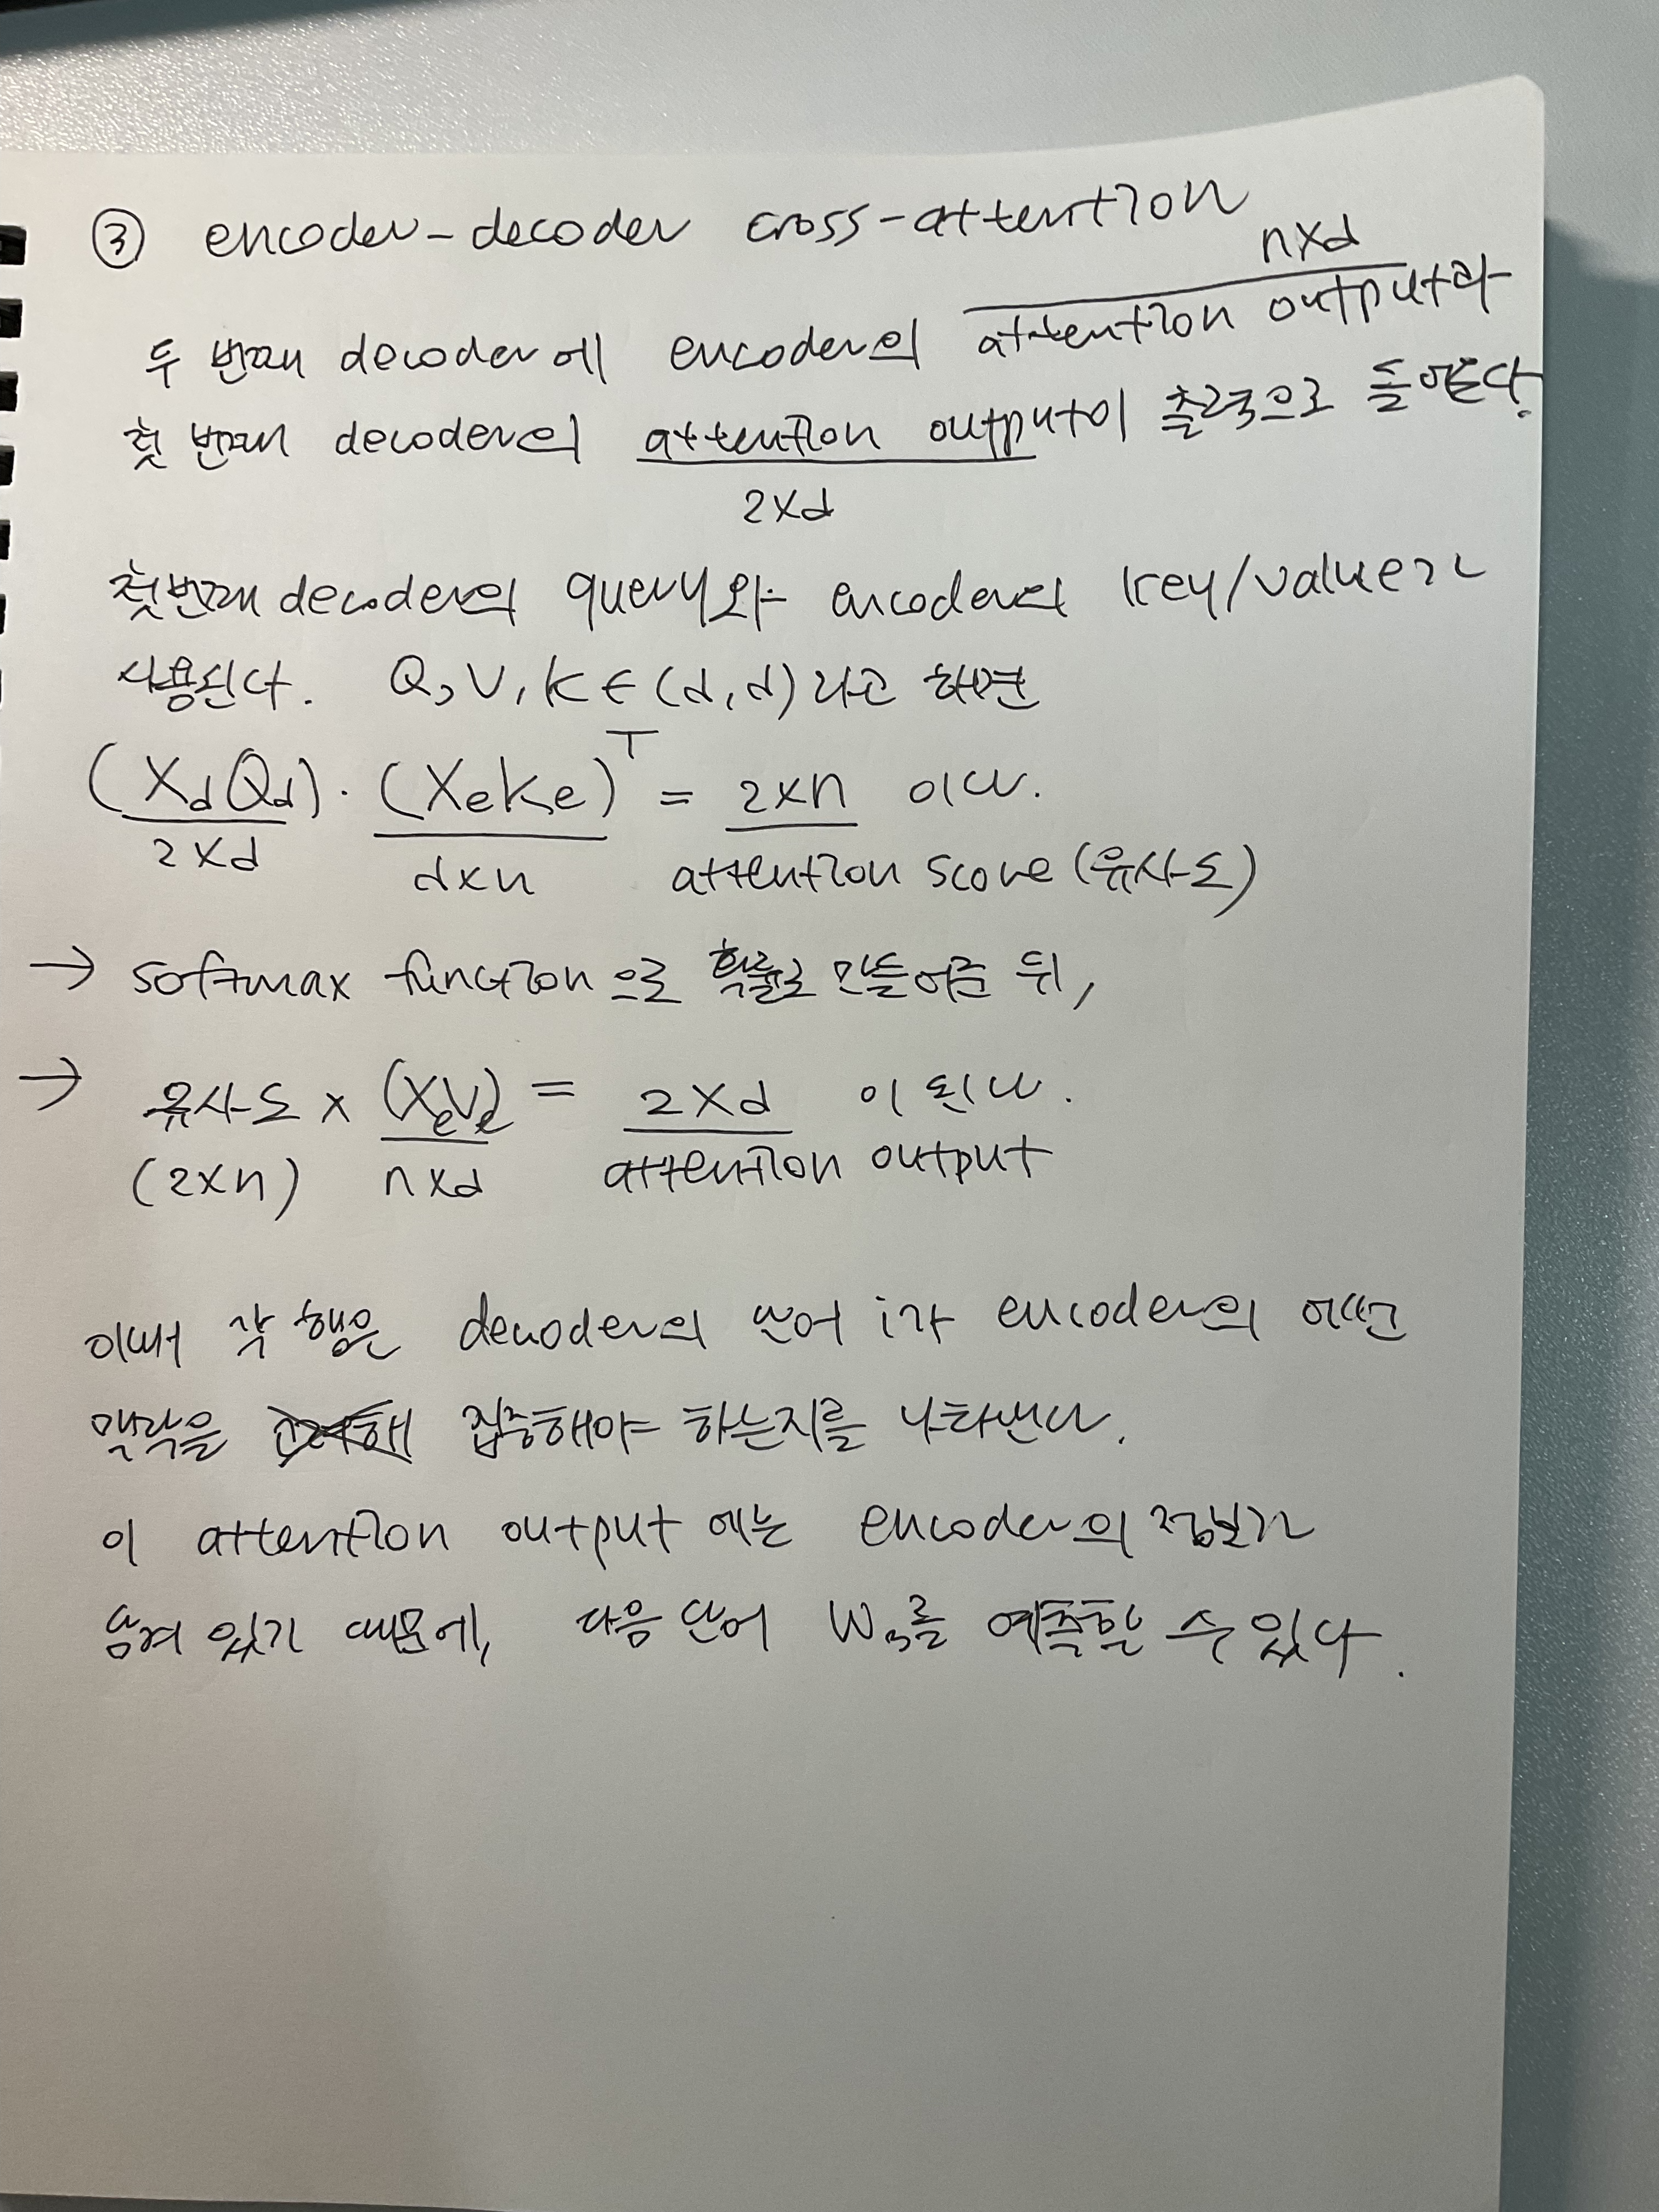 ③ encoder-decoder cross-attention
n×d
두 번째 decoder에 encoder의 attention output과
첫 번째 decoder의 attention output이 출력으로 들어온다.
2×d
첫번째 decoder의 query와 encoder의 key/value가
사용된다. Q, V, K ∈ (d, d) 라고 하면
(XdQd) · (XeKe)ᵀ = 2×n 이다.
2×d d×n attention score (유사도)
→ softmax function으로 확률로 만들어준 뒤,
→ 유사도 × (XeVe) = 2×d 이 된다.
(2×n) n×d attention output
이때 각 행은 decoder의 단어 i가 encoder의 어떤
맥락을 집중해야 하는지를 나타낸다.
이 attention output에는 encoder의 정보가
담겨 있기 때문에, 다음 단어 W₃를 예측할 수 있다.